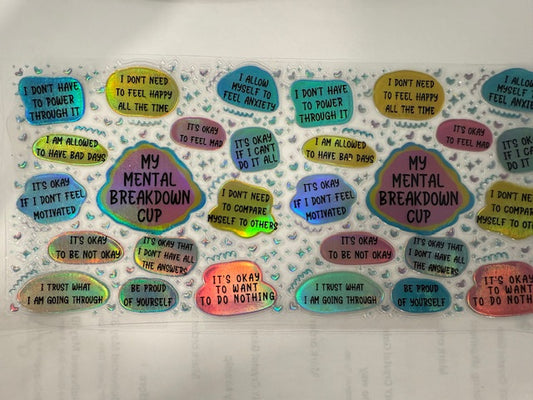 I DON'T HAVE
TO POWER
THROUGH IT
I DON'T NEED
TO FEEL HAPPY
ALL THE TIME
I ALLOW
MYSELF TO
FEEL ANXIETY
I AM ALLOWED
TO HAVE BAD DAYS
IT'S OKAY
TO FEEL MAD
IT'S OKAY
IF I CAN'T
DO IT ALL
MY
MENTAL
BREAKDOWN
CUP
IT'S OKAY
IF I DON'T FEEL
MOTIVATED
I DON'T NEED
TO COMPARE
MYSELF TO OTHERS
IT'S OKAY
TO BE NOT OKAY
IT'S OKAY THAT
I DON'T HAVE ALL
THE ANSWERS
I TRUST WHAT
I AM GOING THROUGH
BE PROUD
OF YOURSELF
IT'S OKAY
TO WANT
TO DO NOTHING
I DON'T HAVE
TO POWER
THROUGH IT
I DON'T NEED
TO FEEL HAPPY
ALL THE TIME
I ALLOW
MYSELF TO
FEEL ANXIETY
I AM ALLOWED
TO HAVE BAD DAYS
IT'S OKAY
TO FEEL MAD
IT'S OKAY
IF I CAN'T
DO IT ALL
MY
MENTAL
BREAKDOWN
CUP
IT'S OKAY
IF I DON'T FEEL
MOTIVATED
I DON'T NEED
TO COMPARE
MYSELF TO OTHERS
IT'S OKAY
TO BE NOT OKAY
IT'S OKAY THAT
I DON'T HAVE ALL
THE ANSWERS
I TRUST WHAT
I AM GOING THROUGH
BE PROUD
OF YOURSELF
IT'S OKAY
TO WANT
TO DO NOTH